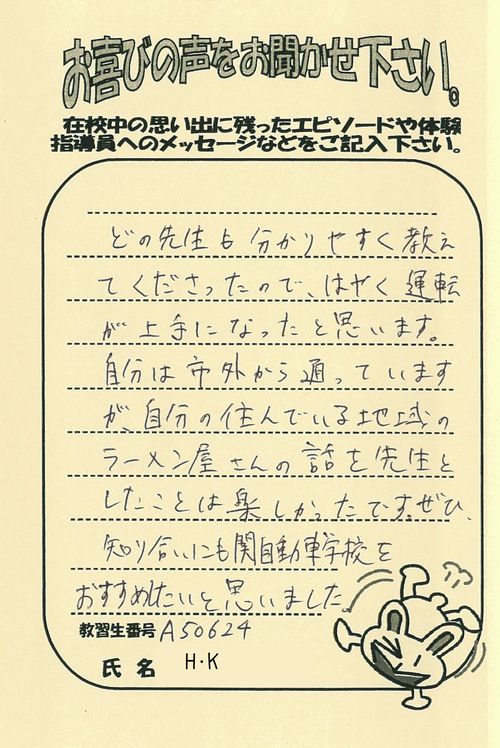 お喜びの声をお聞かせ下さい。
在校中の思い出に残ったエピソードや体験
指導員へのメッセージなどをご記入下さい。
どの先生も分かりやすく教え
てくださったので、はやく運転
が上手になったと思います。
自分は市外から通っています
が、自分の住んでいる地域の
ラーメン屋さんの話を先生と
したことは楽しかったです。ぜひ、
知り合いにも関自動車学校を
おすすめしたいと思いました。
教習生番号 A50624
氏名 H・K